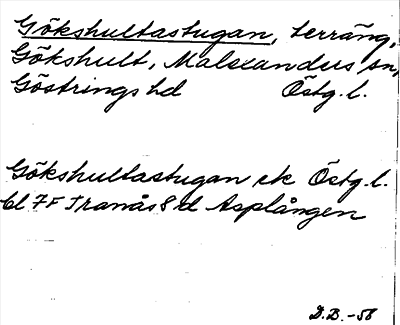 Gökshultastugan, terräng,
Gökshult, Malexanders sn,
Göstrings hd Östg. l.
Gökshultastugan ek Östg. l.
bl 7F Tranås 8d Asplången
D.B. -58